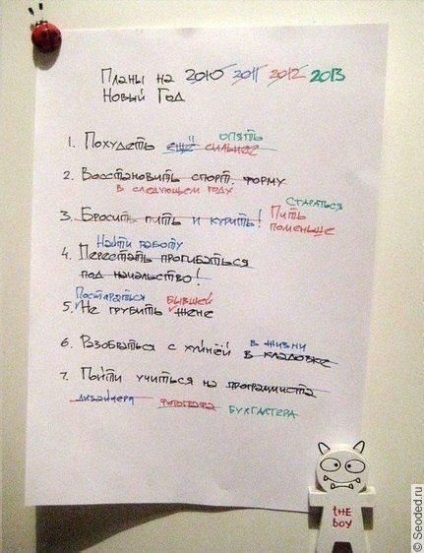 Планы на 2010 2011 2012 2013
Новый Год
опять
1. Похудеть ещё сильнее
2. Восстановить спорт. форму
в следующем году
стараться
3. Бросить пить и курить! Пить
поменьше
Найти работу
4. Перестать прогибаться
под начальство!
Постараться бывшей
5. Не грубить жене
в жизни
6. Разобраться с хуйнёй в кладовке
7. Пойти учиться на программиста
дизайнера фотографа бухгалтера
the
boy
© Seoded.ru